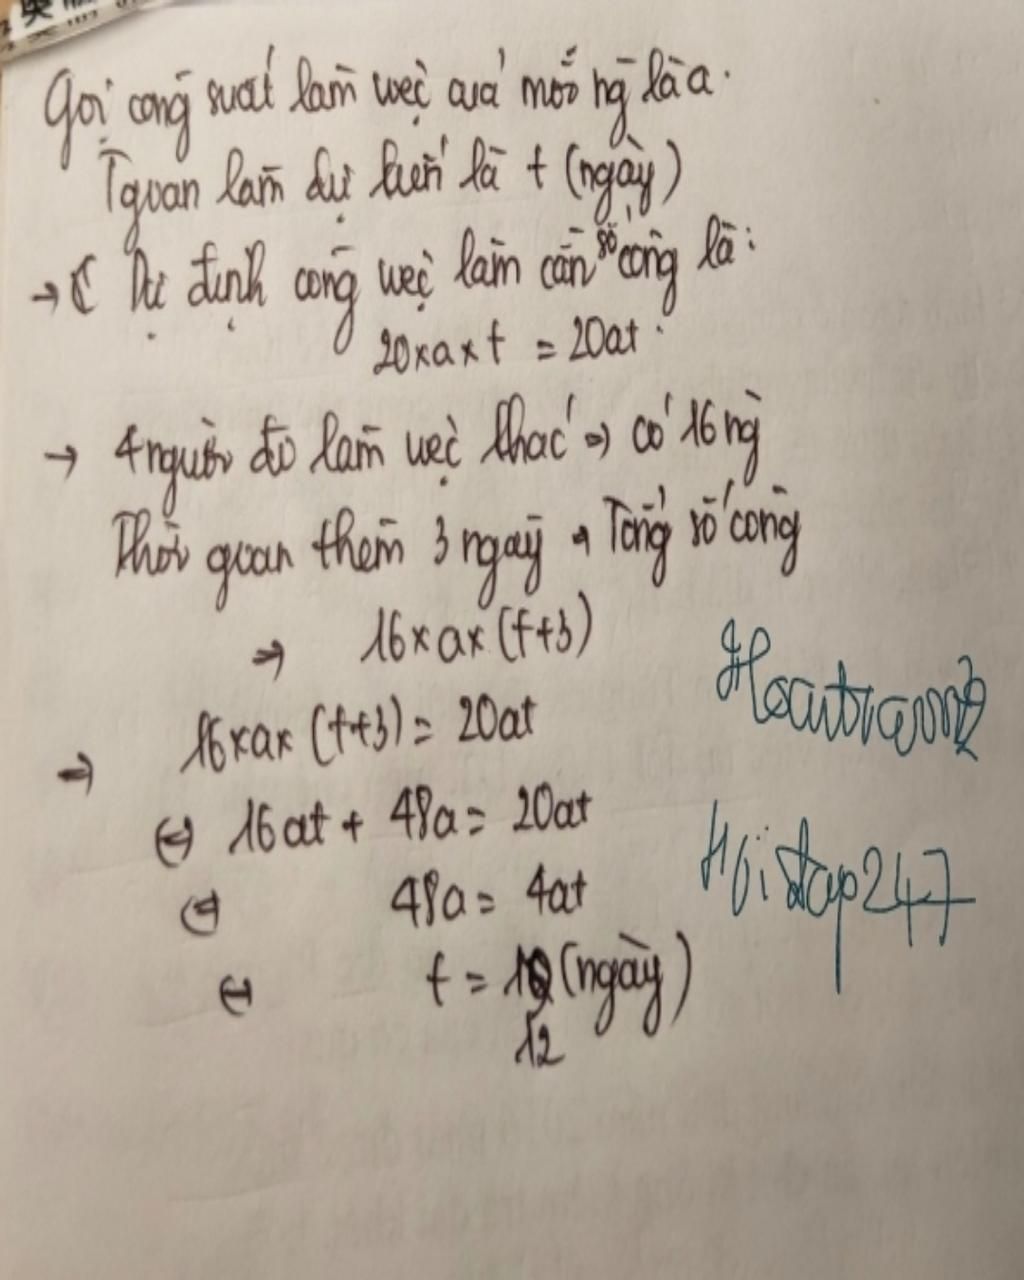 Gọi công suất làm việc quả mỗi ng là a.
Tquan làm dự kiến là t (ngày)
→ Dự định công việc làm cần số công là:
20 x a x t = 20at.
→ 4 người đi làm việc khác ⇒ có 16 ng
Thời quan thêm 3 ngày → Tổng số công
⇒ 16 x a x (t+3)
⇒ 16 x a x (t+3) = 20at
⇔ 16at + 48a = 20at
⇔ 48a = 4at
⇔ t = (ngày)
12
Hoidap247